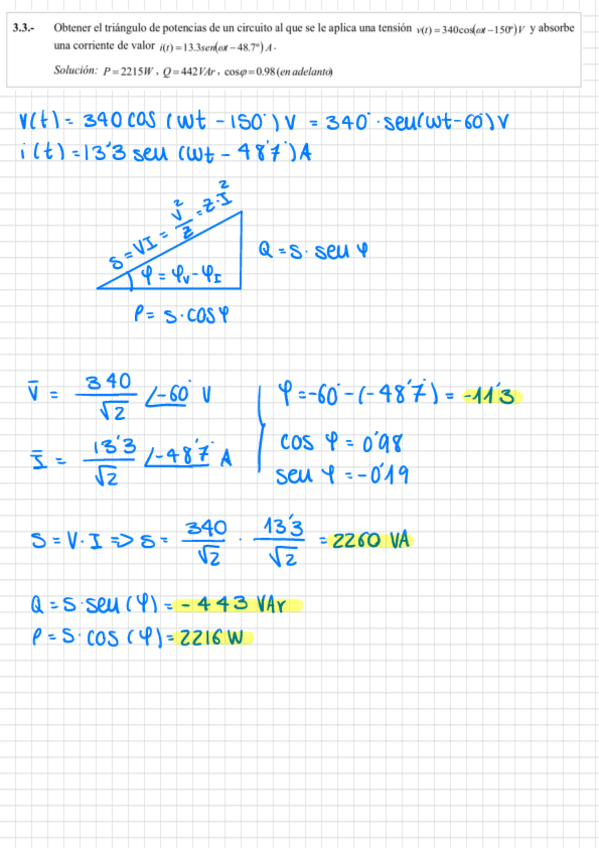 3.3.- Obtener el triángulo de potencias de un circuito al que se le aplica una tensión v(t)=340cos(ωt−150º)V y absorbe
una corriente de valor i(t)=13.3sen(ωt−48.7º)A.
Solución: P=2215W, Q=442VAr, cosφ=0.98(en adelanto)
V(t) = 340 cos (wt - 150°) V = 340 · seu(wt-60°) V
i(t) = 13'3 seu (wt - 48'7°) A
S = VI = V²/Z = Z·I²
φ = φV - φI
Q = S · seu φ
P = S · cos φ
V̄ = 340/√2 ∠-60° V
φ = -60° - (-48'7°) = -11'3
Ī = 13'3/√2 ∠-48'7° A
cos φ = 0'98
seu φ = -0'19
S = V·I => S = 340/√2 · 13'3/√2 = 2260 VA
Q = S·seu(φ) = -443 VAr
P = S·cos(φ) = 2216 W